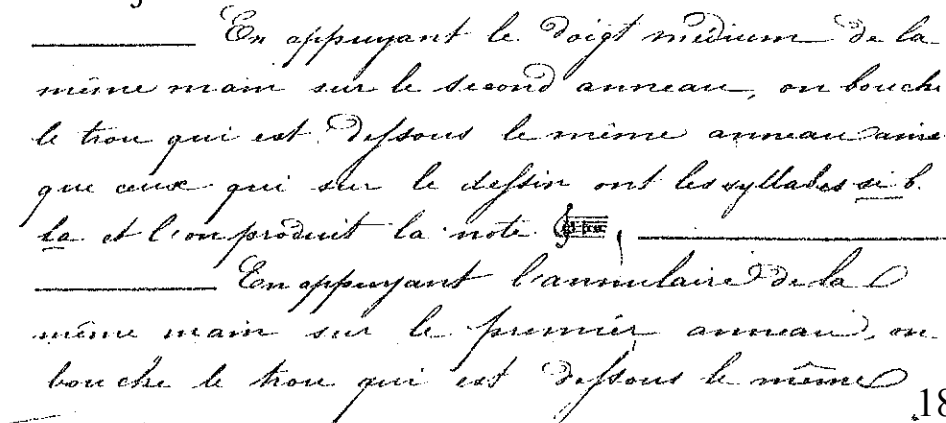 En appuyant le doigt médium de la
même main sur le second anneau, on bouche
le trou qui est dessous le même anneau ainsi
que ceux qui sur le dessin ont les syllabes si b.
la et l'on produit la note
En appuyant l'annulaire de la
même main sur le premier anneau, on
bouche le trou qui est dessous le même
18